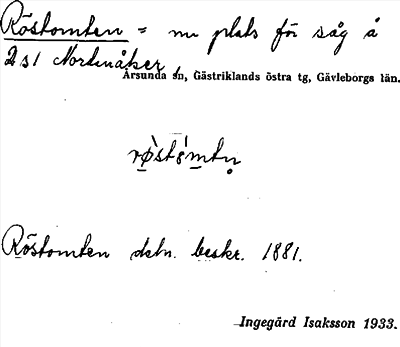 Röstomten = nu plats för såg å
2 s 1 Nordanåker,
Årsunda sn, Gästriklands östra tg, Gävleborgs län.
Röstomten detn. beskr. 1881.
Ingegärd Isaksson 1933.